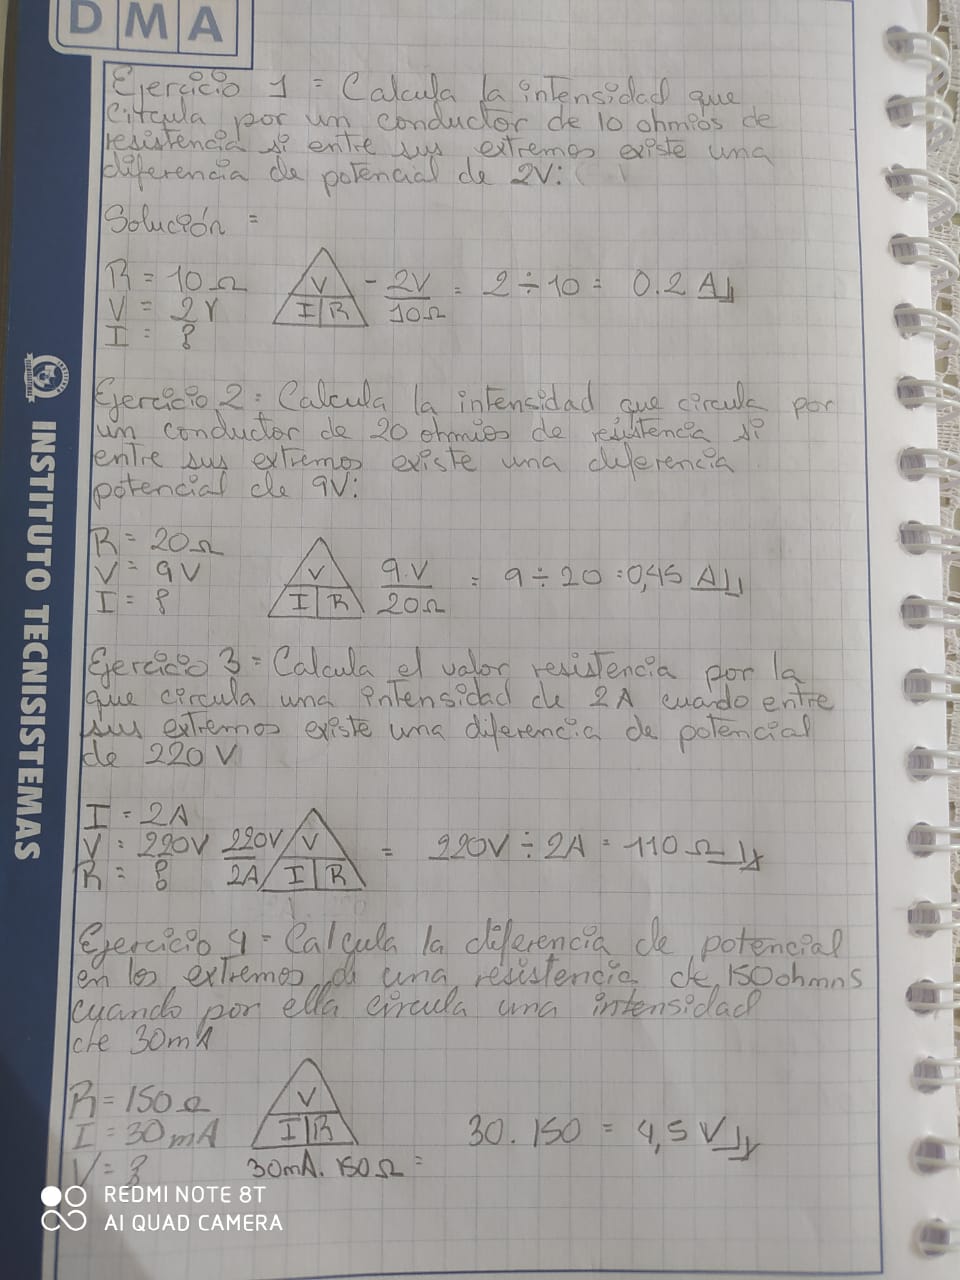 DMA
INSTITUTO TECNISISTEMAS
Ejercicio 1 = Calcula la intensidad que
circula por un conductor de 10 ohmios de
resistencia si entre sus extremos existe una
diferencia de potencial de 2V:
Solución =
R = 10Ω
V = 2V
I = ?
V
I R
- 2V/10Ω = 2 ÷ 10 = 0.2 A
Ejercicio 2 = Calcula la intensidad que circula por
un conductor de 20 ohmios de resistencia si
entre sus extremos existe una diferencia
potencial de 9V:
R = 20Ω
V = 9V
I = ?
V
I R
9.V/20Ω = 9 ÷ 20 = 0,45 A
Ejercicio 3 = Calcula el valor resistencia por la
que circula una intensidad de 2A cuando entre
sus extremos existe una diferencia de potencial
de 220 V
I = 2A
V = 220V
R = ?
220V/2A
V
I R
= 220V ÷ 2A = 110 Ω
Ejercicio 4 = Calcula la diferencia de potencial
en los extremos de una resistencia de 150 ohmns
cuando por ella circula una intensidad
de 30mA
R = 150Ω
I = 30mA
V = ?
V
I R
30mA. 150Ω =
30 . 150 = 4,5 V
REDMI NOTE 8T
AI QUAD CAMERA